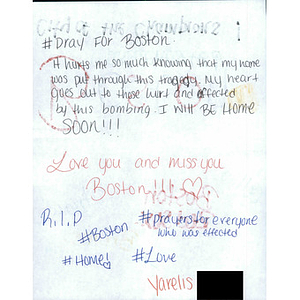 #Pray For Boston.
It hurts me so much knowing that my home
was put through this tragedy. My heart
goes out to those hurt and affected
by this bombing. I will BE Home
SOON!!!
Love you and miss you
Boston!!!
R.I.P
#prayersforeveryone
who was effected
#Boston
#Home!
#Love
Yarelis